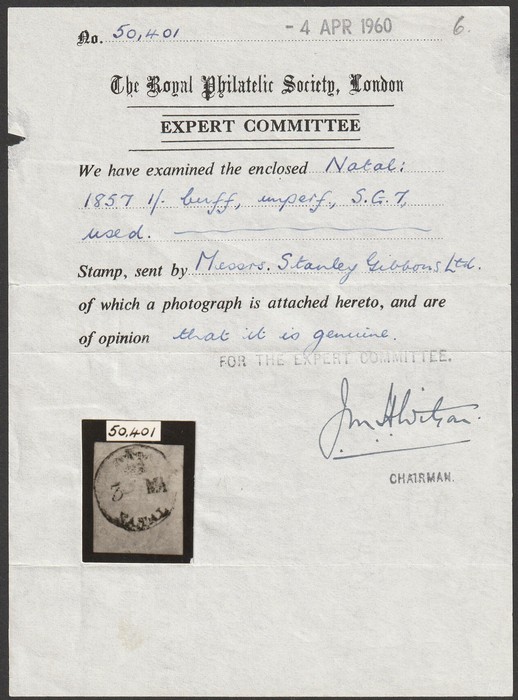 No. 50,401
- 4 APR 1960
6.
The Royal Philatelic Society, London
EXPERT COMMITTEE
We have examined the enclosed Natal:
1857 1/. buff, imperf., S.G. 7,
used.
Stamp, sent by Messrs. Stanley Gibbons Ltd.
of which a photograph is attached hereto, and are
of opinion that it is genuine.
FOR THE EXPERT COMMITTEE.
CHAIRMAN.
50,401
3 MA
NATAL